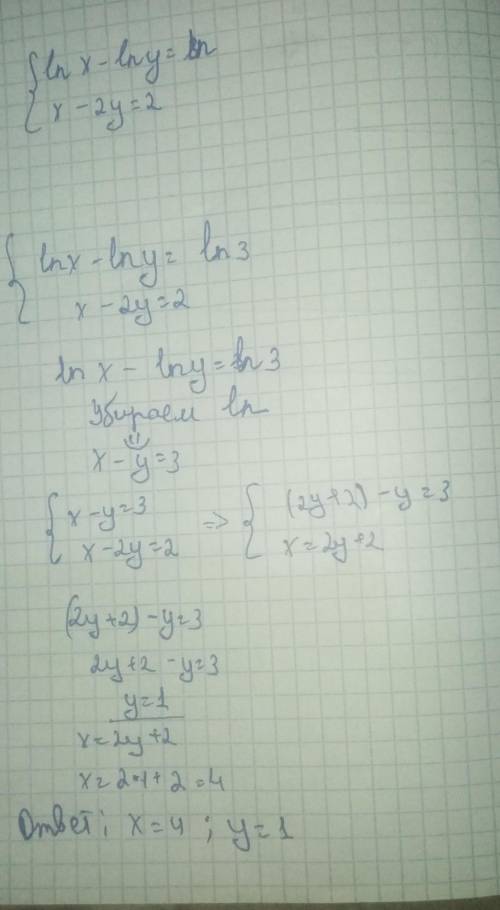 ln x - ln y = ln
x - 2y = 2
ln x - ln y = ln 3
x - 2y = 2
ln x - ln y = ln 3
Убираем ln
x - y = 3
x - y = 3 => (2y + 2) - y = 3
x - 2y = 2 x = 2y + 2
(2y + 2) - y = 3
2y + 2 - y = 3
y = 1
x = 2y + 2
x = 2·1 + 2 = 4
Ответ: x = 4 ; y = 1